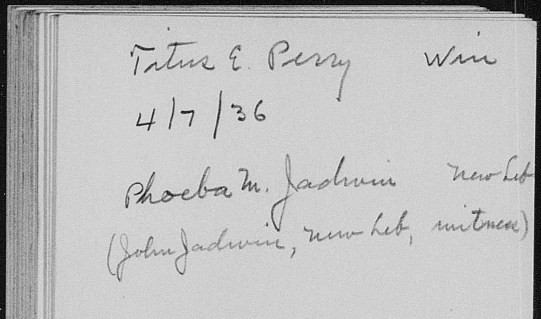 Titus E. Perry Win
4/7/36
Phoeba M. Jadwin New Leb
(John Jadwin, New Leb, witness)